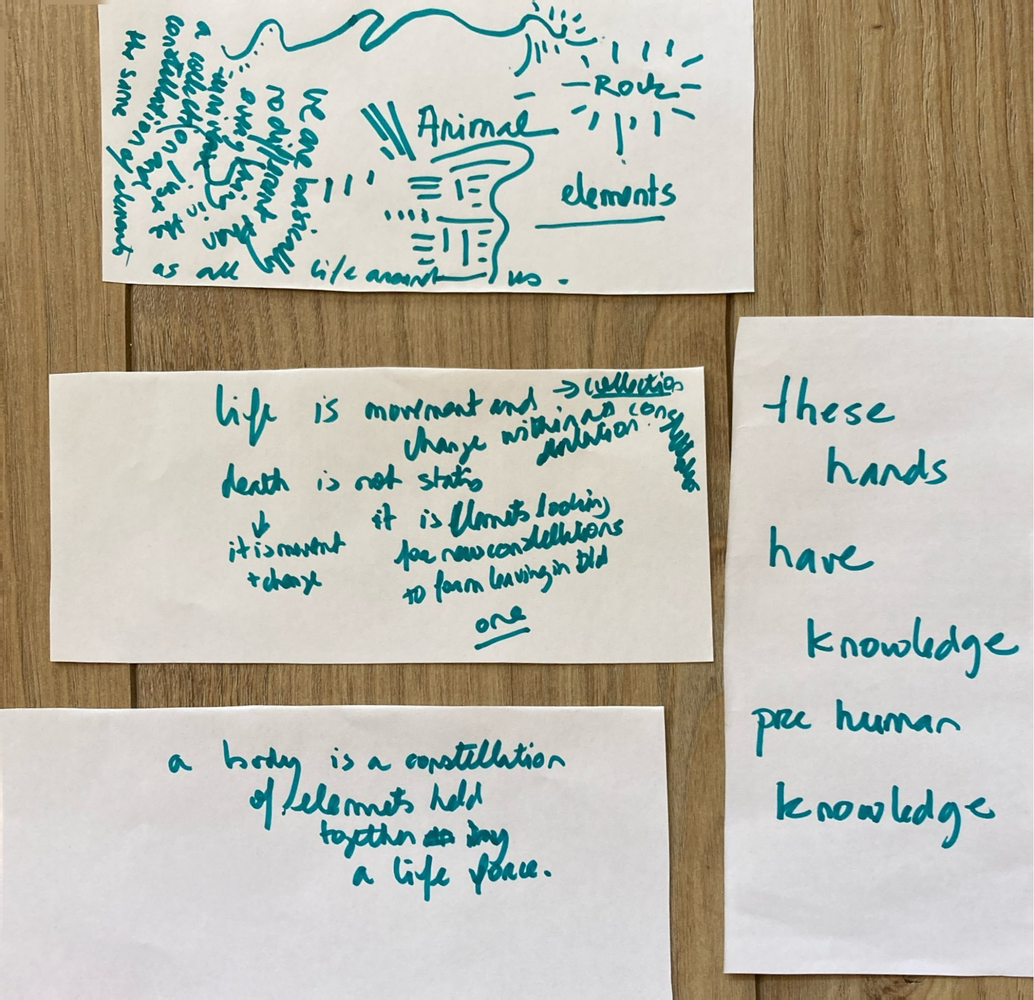 Rock
Animal
elements
we are basically
no different than
any thing in
a collection just the
constellation of elements
the same
as all life around us.
life is movement and → collection
change within a cons
tellation
death is not static
↓
it is movment
+ change
it is elemnts looking
for new constellations
to form leaving in old
one
these
hands
have
knowledge
pre human
knowledge
a body is a constellation
of elemnets held
together by
a life force.